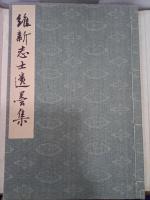 維新志士遺墨集